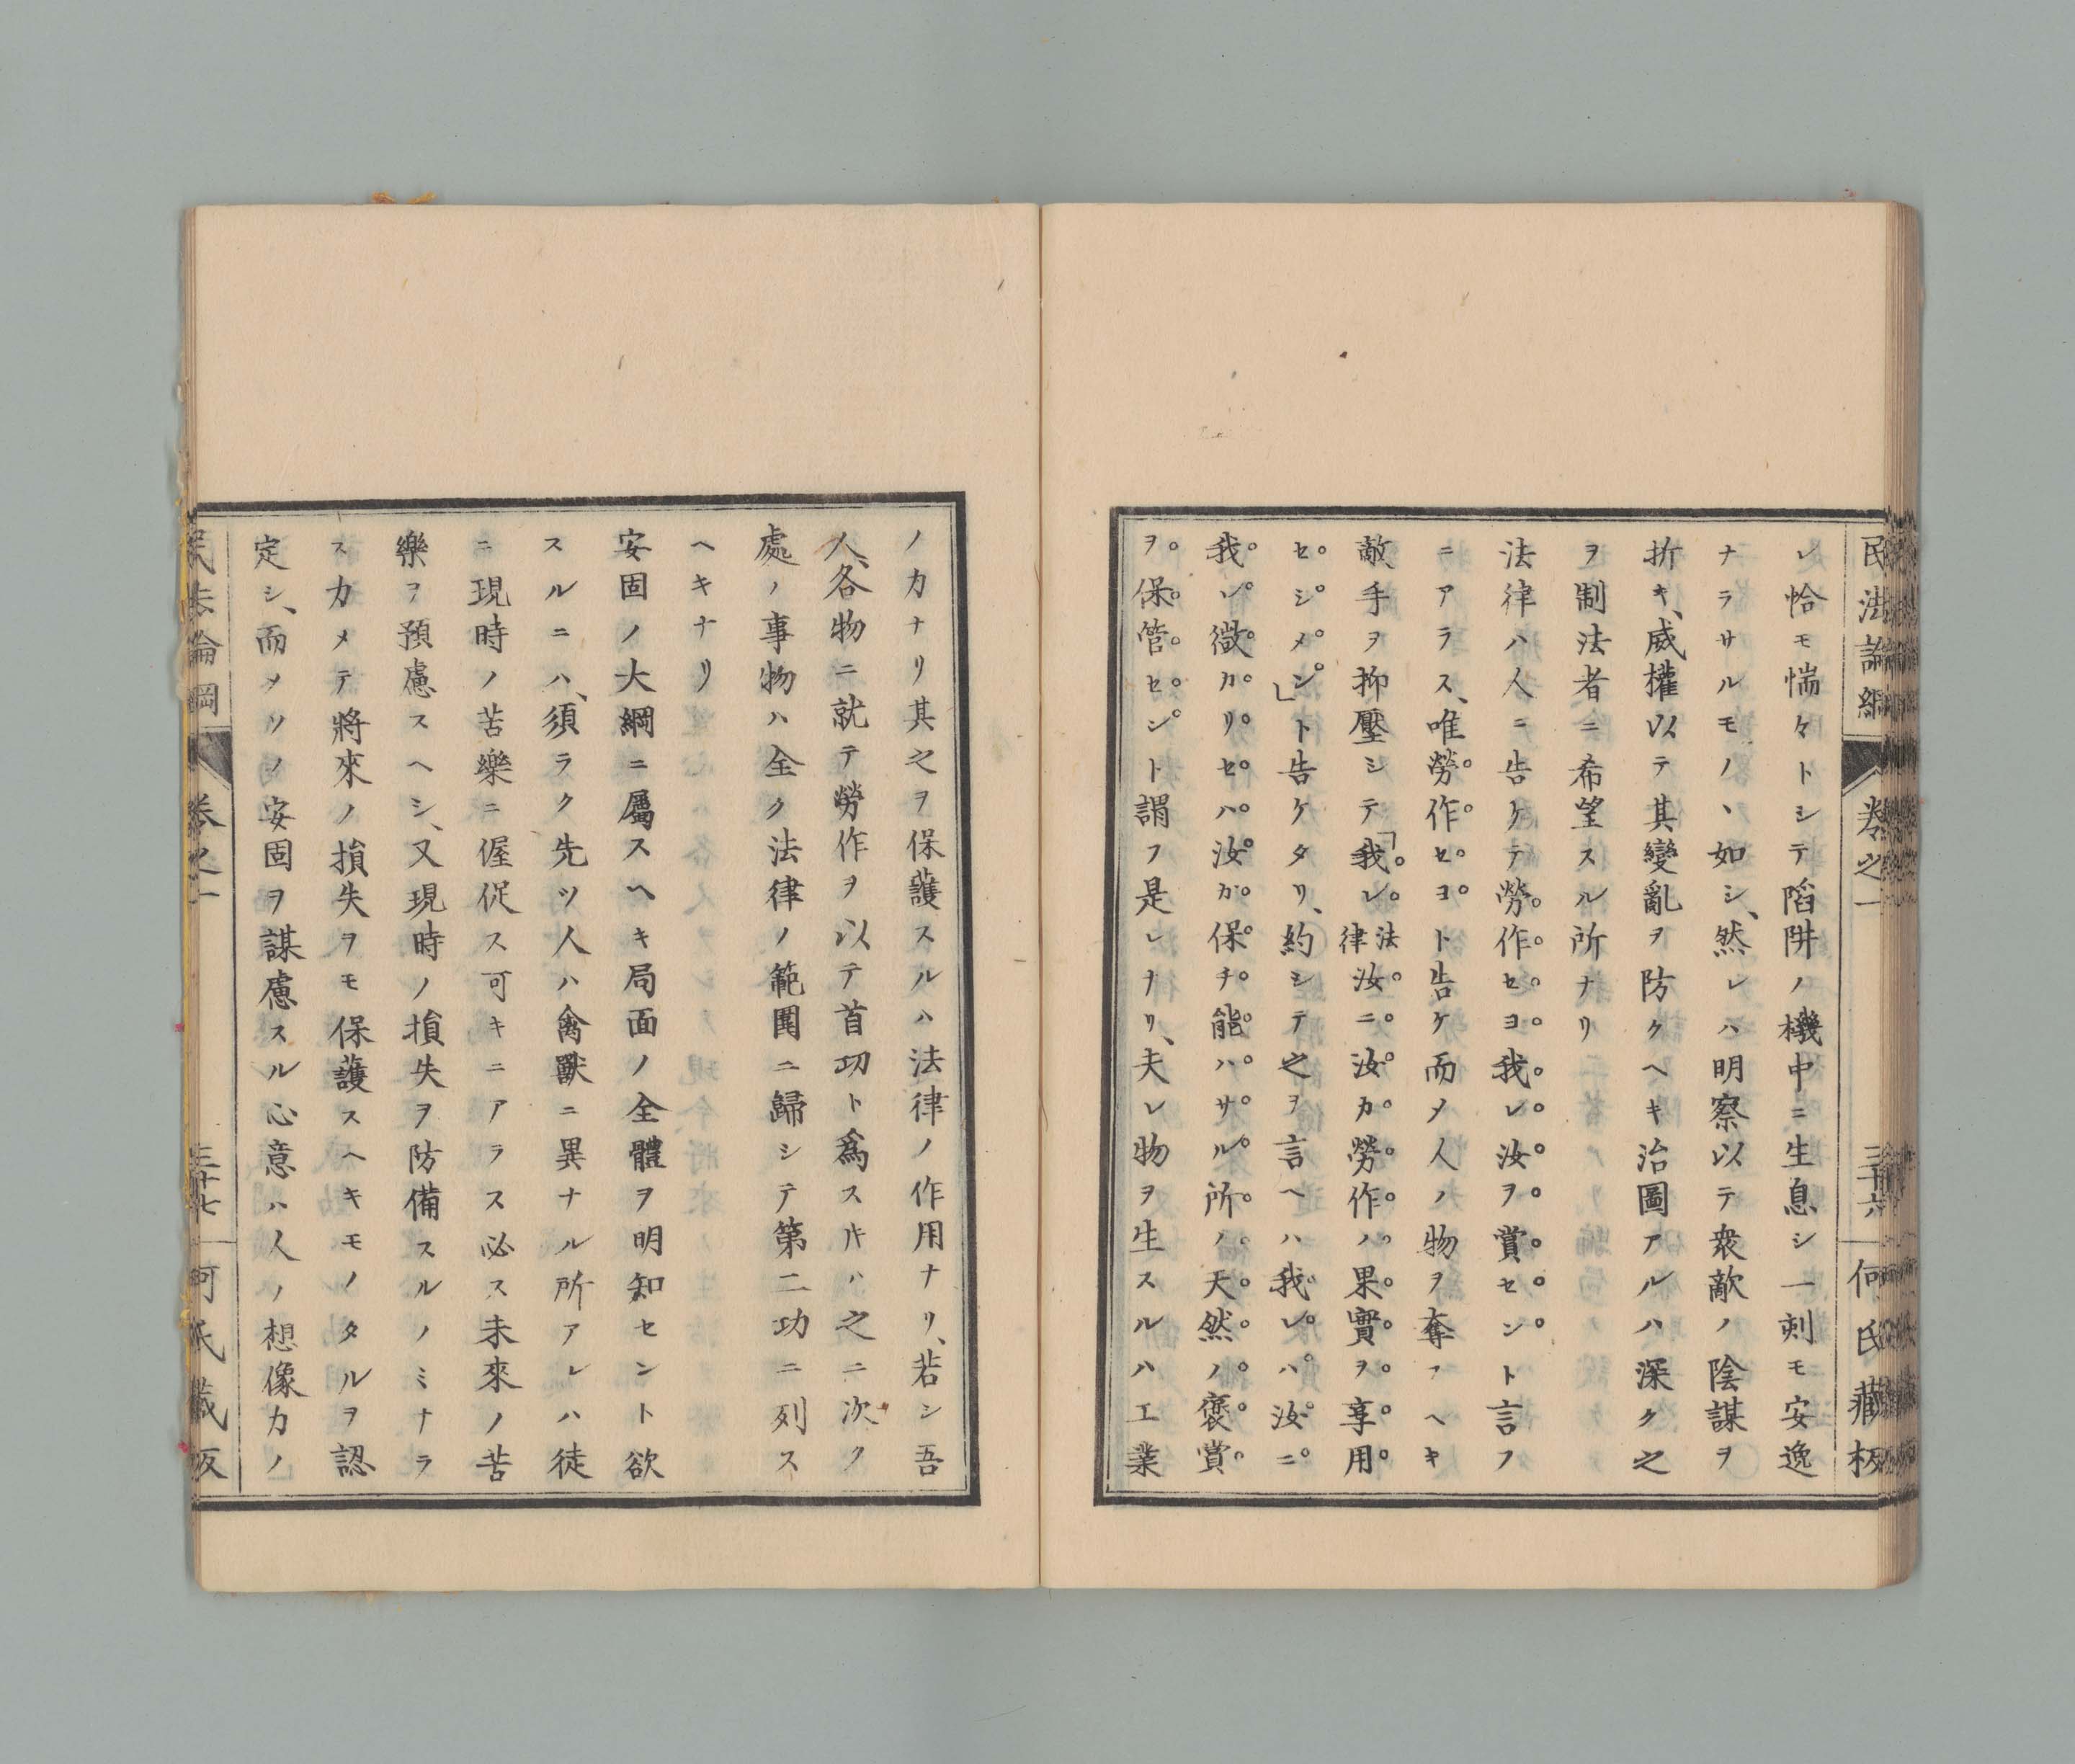 民法論綱 卷之一 三十六 何氏藏板
レ恰モ惴々トシテ陷阱ノ機中ニ生息シ一刻モ安逸
ナラサルモノヽ如シ、然レハ明察以テ衆敵ノ陰謀ヲ
折キ、威權以テ其變亂ヲ防クヘキ治圖アルハ深ク之
ヲ制法者ニ希望スル所ナリ
法律ハ人ニ告ケテ勞作セヨ我レ汝ヲ賞センﾄ言フ
ニアラス、唯勞作セヨト告ケ而メ人ノ物ヲ奪フヘキ
敵手ヲ抑壓シテ「我レ法律汝ニ汝カ勞作ノ果實ヲ享用
セシメン」ト告ケタリ、約シテ之ヲ言ヘハ我レハ汝ニ
我レ微カリセハ汝カ保チ能ハサル所ノ天然ノ褒賞
ヲ保管センﾄ謂フ是レナリ、夫レ物ヲ生スルハ工業
ノカナリ其之ヲ保護スルハ法律ノ作用ナリ、若シ吾
人各物ニ就テ勞作ヲ以テ首功ト爲スㇳキハ之ニ次ク
處ノ事物ハ全ク法律ノ範圍ニ歸シテ第二功ニ列ス
ヘキナリ
安固ノ大綱ニ屬スヘキ局面ノ全體ヲ明知センㇳ欲
スルニハ、須ラク先ツ人ハ禽獸ニ異ナル所アレハ徒
ニ現時ノ苦樂ニ偓促ス可キニアラス必ス未來ノ苦
樂ヲ預慮スヘシ、又現時ノ損失ヲ防備スルノミナラ
スカメテ將來ノ損失ヲモ保護スヘキモノタルヲ認
定シ、而メソノ安固ヲ謀慮スル心意ハ人ノ想像カノ
民法論綱 卷之一 三十七 何氏藏板